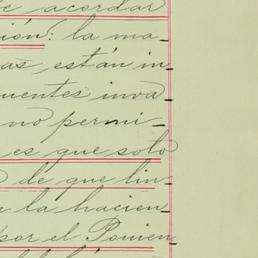 e acordar
ión: la ma-
as, están in-
uentes inva-
no permi-
es que solo
de que lin-
e la hacien-
por el Ponien-